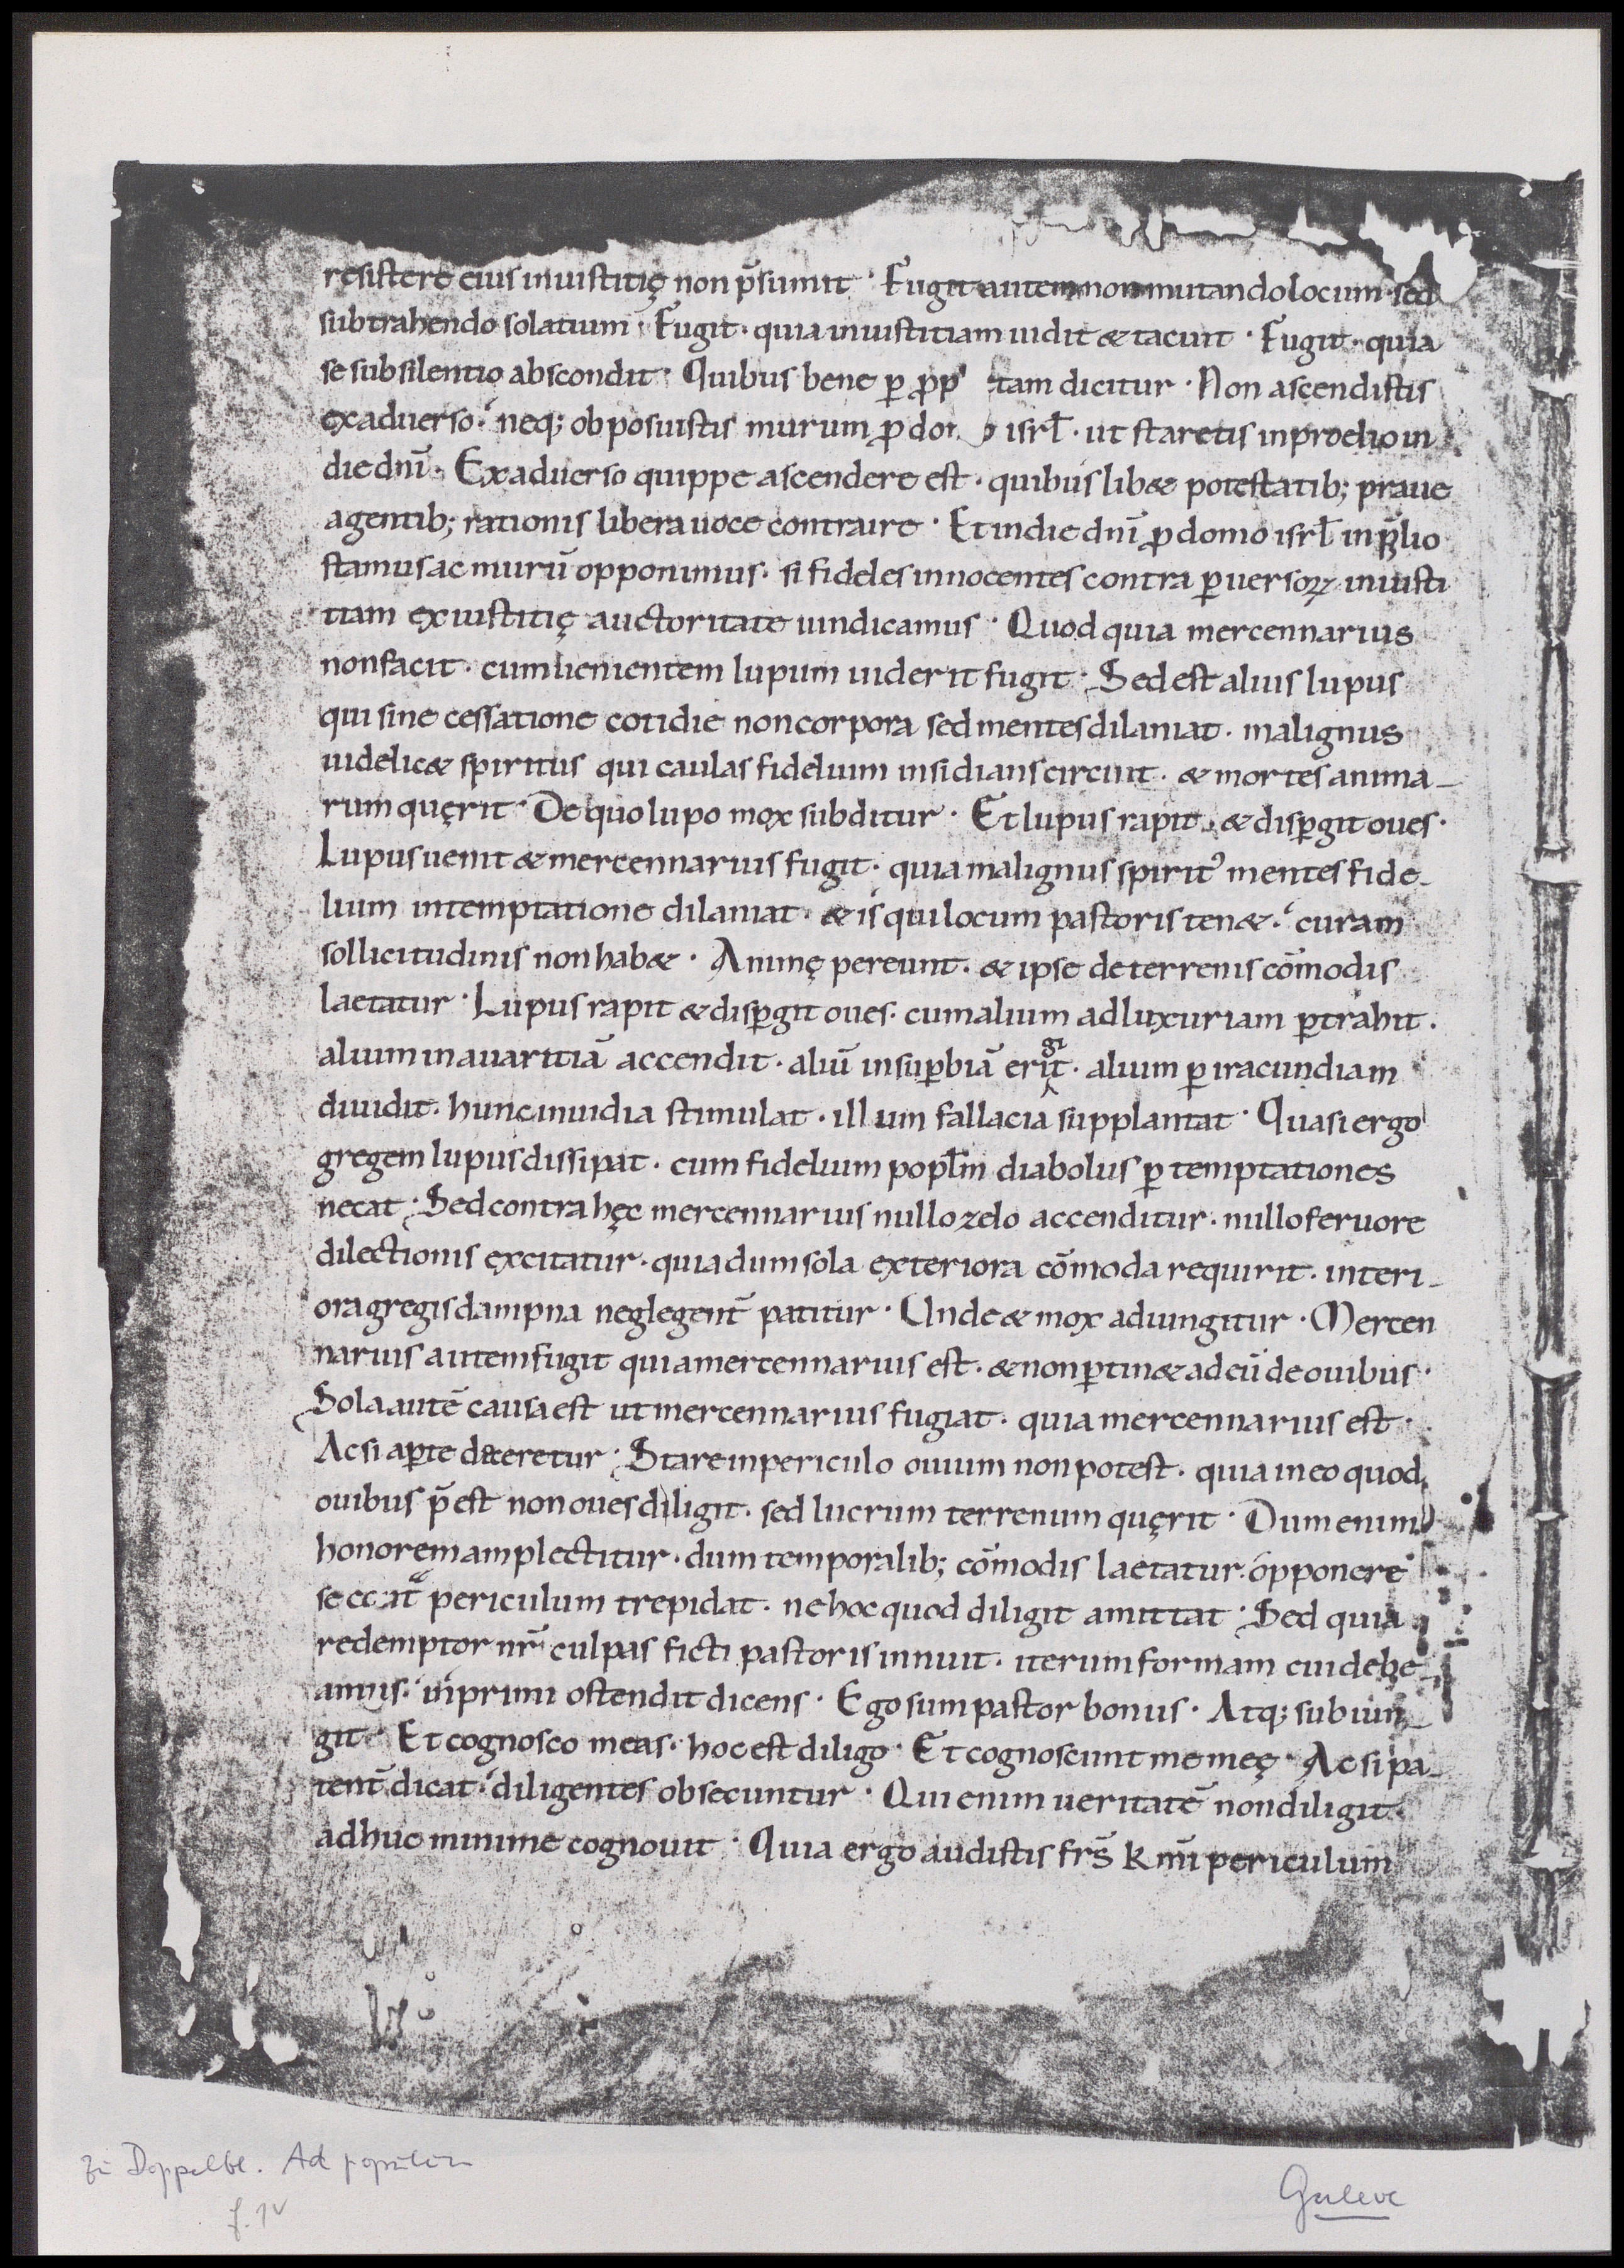 resistere eius iniustitię non p̄sumit · Fugit autem non mutando locum · sed
subtrahendo solatium · Fugit · quia iniustitiam uidit & tacuit · Fugit · quia
se sub silentio abscondit · Quibus bene ꝑ ꝓp tam dicitur · Non ascendistis
ex aduerso · neq; obposuistis murum ꝓ do o isrl̄ · ut staretis in proelio in
die dnī · Ex aduerso quippe ascendere est · quibuslib& potestatib; praue
agentib; rationis libera uoce contraire · Et in die dnī ꝓ domo isrl̄ in p̄lio
stamus ac murū opponimus · si fideles innocentes contra ꝑuersoꝝ iniusti
tiam ex iustitię auctoritate uindicamus · Quod quia mercennarius
non facit · cum uenientem lupum uiderit fugit · Sed est alius lupus
qui sine cessatione cotidie non corpora sed mentes dilaniat · malignus
uidelic& spiritus qui caulas fidelium insidians circuit · & mortes anima-
rum quęrit · De quo lupo mox subditur · Et lupus rapit · & disꝑgit oues ·
Lupus uenit & mercennarius fugit · quia malignus spirit᾿ mentes fide-
lium in temptatione dilaniat · & is qui locum pastoris ten& · curam
sollicitudinis non hab& · Animę pereunt · & ipse de terrenis cōmodis
laetatur · Lupus rapit & disꝑgit oues · cum alium ad luxuriam ꝑtrahit ·
alium in auaritiā accendit · aliū in suꝑbiā erigit · alium ꝑ iracundiam
diuidit · hunc inuidia stimulat · illum fallacia supplantat · Quasi ergo
gregem lupus dissipat · cum fidelium popl̄m diabolus ꝑ temptationes
necat · Sed contra hęc mercennarius nullo zelo accenditur · nullo feruore
dilectionis excitatur · quia dum sola exteriora cōmoda requirit · interi-
ora gregis dampna neglegent̄ patitur · Unde & mox adiungitur · Mercen
narius autem fugit quia mercennarius est · & non ꝑtin& ad eū de ouibus ·
Sola autē causa est ut mercennarius fugiat · quia mercennarius est ·
Ac si aꝑte diceretur · Stare in periculo ouium non potest · quia in eo quod
ouibus p̄est non oues diligit · sed lucrum terrenum quęrit · Dum enim
honorem amplectitur · dum temporalib; cōmodis laetatur · opponere
se periculum trepidat · ne hoc quod diligit amittat · Sed quia
redemptor nr̄ culpas ficti pastoris innuit · iterum formam cui debe
amus · inprimi ostendit dicens · Ego sum pastor bonus · Atq; subiun
git · Et cognosco meas · hoc est diligo · Et cognoscunt me meę · Ac si pa-
tent̄ dicat · diligentes obsecuntur · Qui enim ueritatē non diligit
adhuc minime cognouit · Quia ergo audistis frs̄ k mī periculum
zu Doppelbl. Ad populum
f. 1v